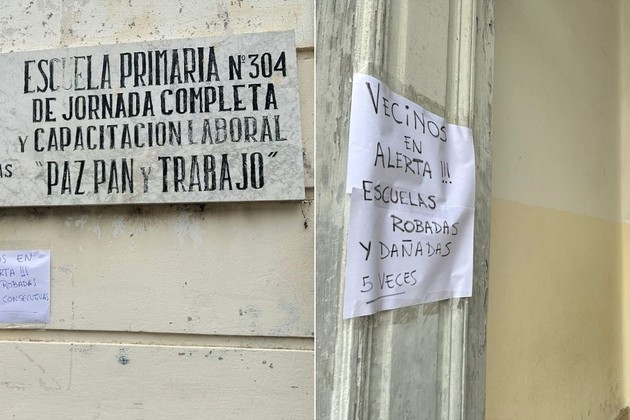 ESCUELA PRIMARIA Nº304
DE JORNADA COMPLETA
Y CAPACITACION LABORAL
"PAZ PAN Y TRABAJO"
EN
ROBADAS
CONSECUTIVAS
VECINOS
EN
ALERTA !!!
ESCUELAS
ROBADAS
Y DAÑADAS
5 VECES